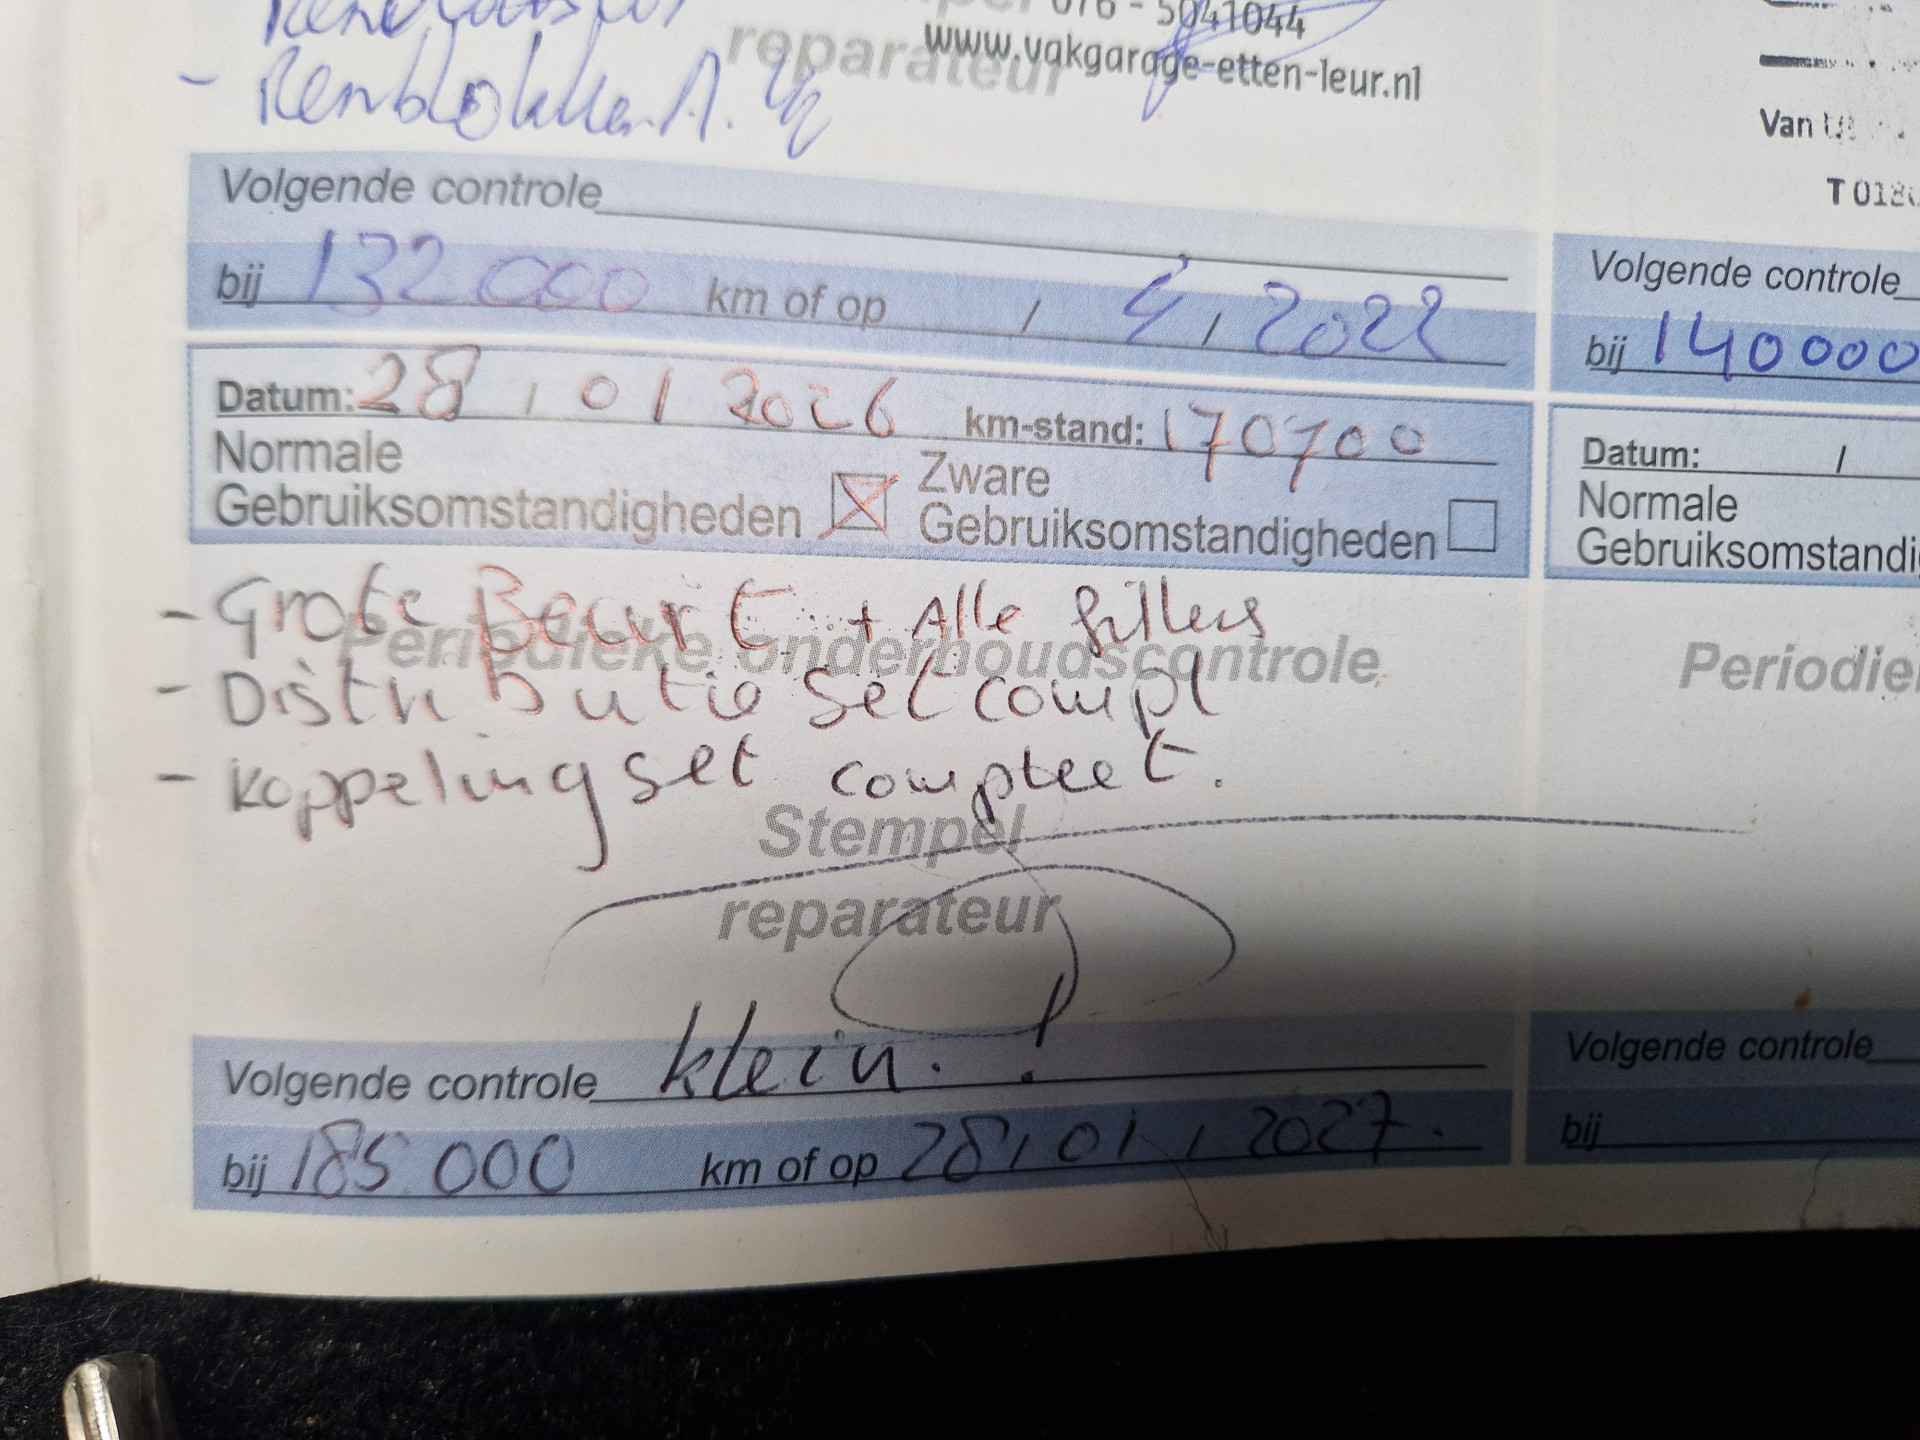 - Remblokken A.
reparateur
076 - 5041044
www.vakgarage-etten-leur.nl
Volgende controle
bij 132 000 km of op / 4 / 2022
Datum: 28 / 01 2026 km-stand: 170700
Normale
Gebruiksomstandigheden
Zware
Gebruiksomstandigheden
- Grote Beurt + Alle filters
Periodieke onderhoudscontrole
- Distributie set compl
- Koppeling set compleet.
Stempel
reparateur
Volgende controle klein. !
bij 185 000 km of op 28 / 01 / 2027.
Van
T 0180
Volgende controle
bij 140000
Datum: /
Normale
Gebruiksomstandi
Periodie
Volgende controle
bij